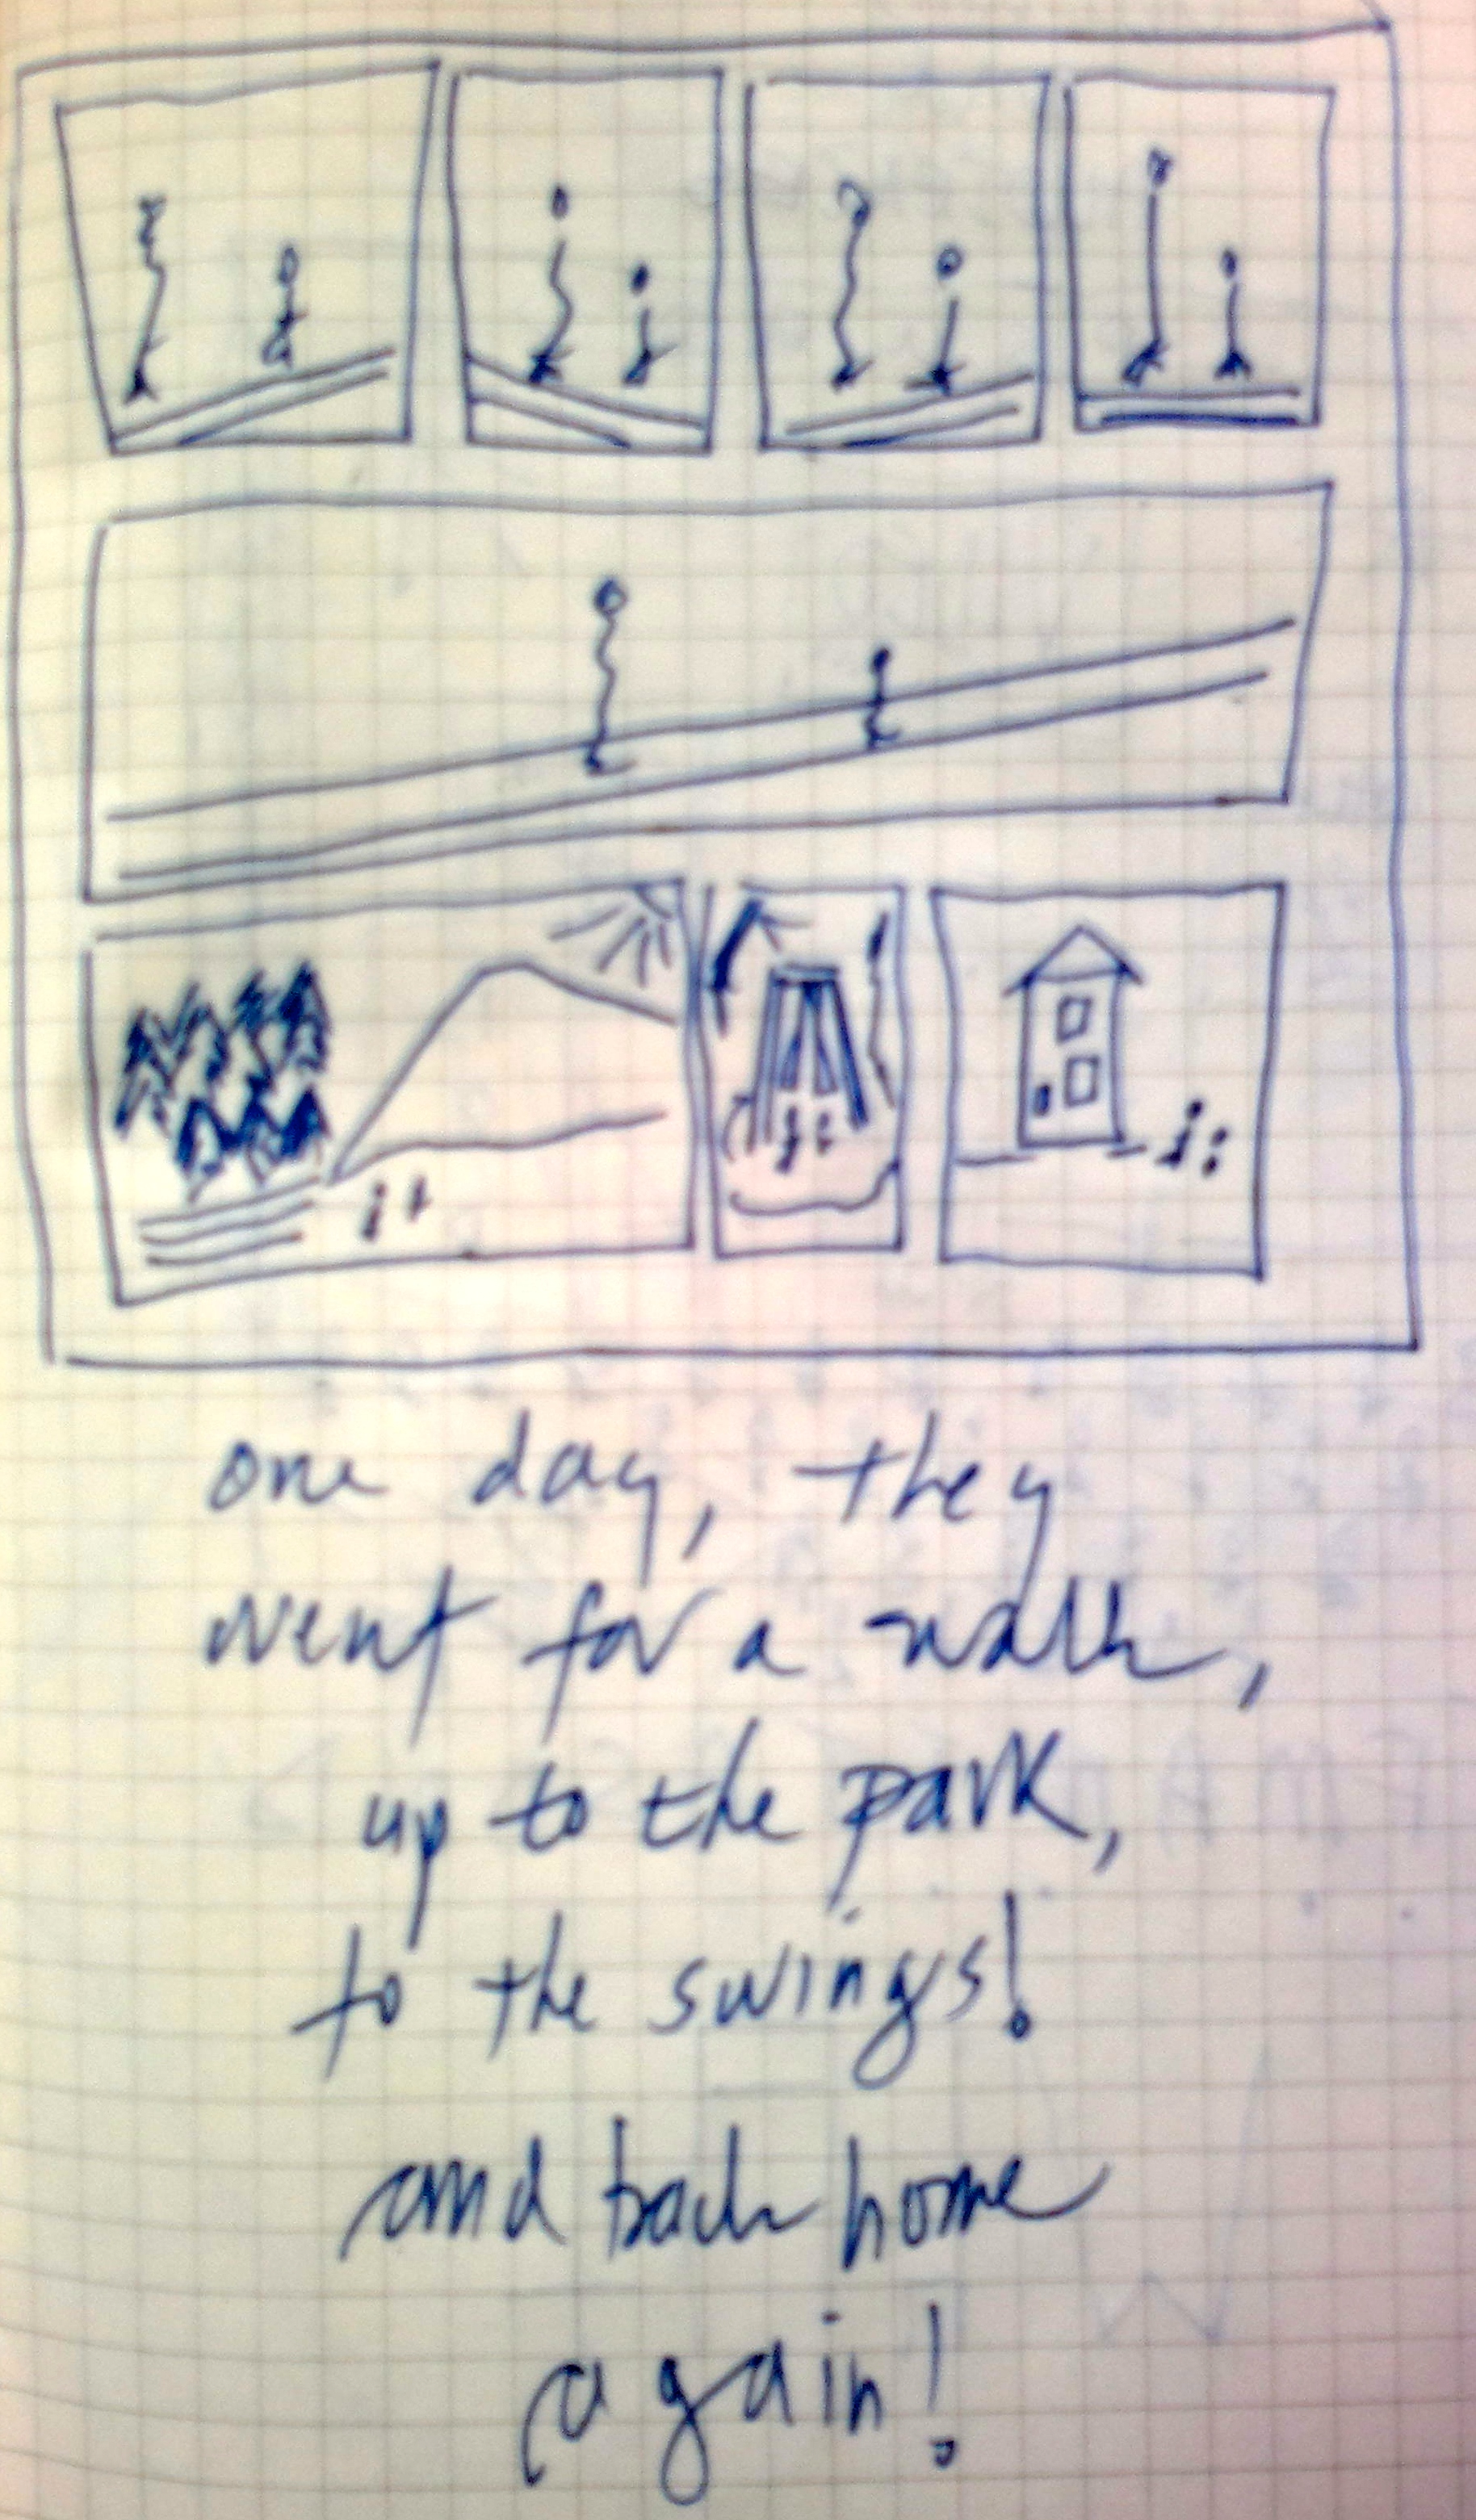 one day, they
went for a walk,
up to the park,
to the swings!
and back home
again!